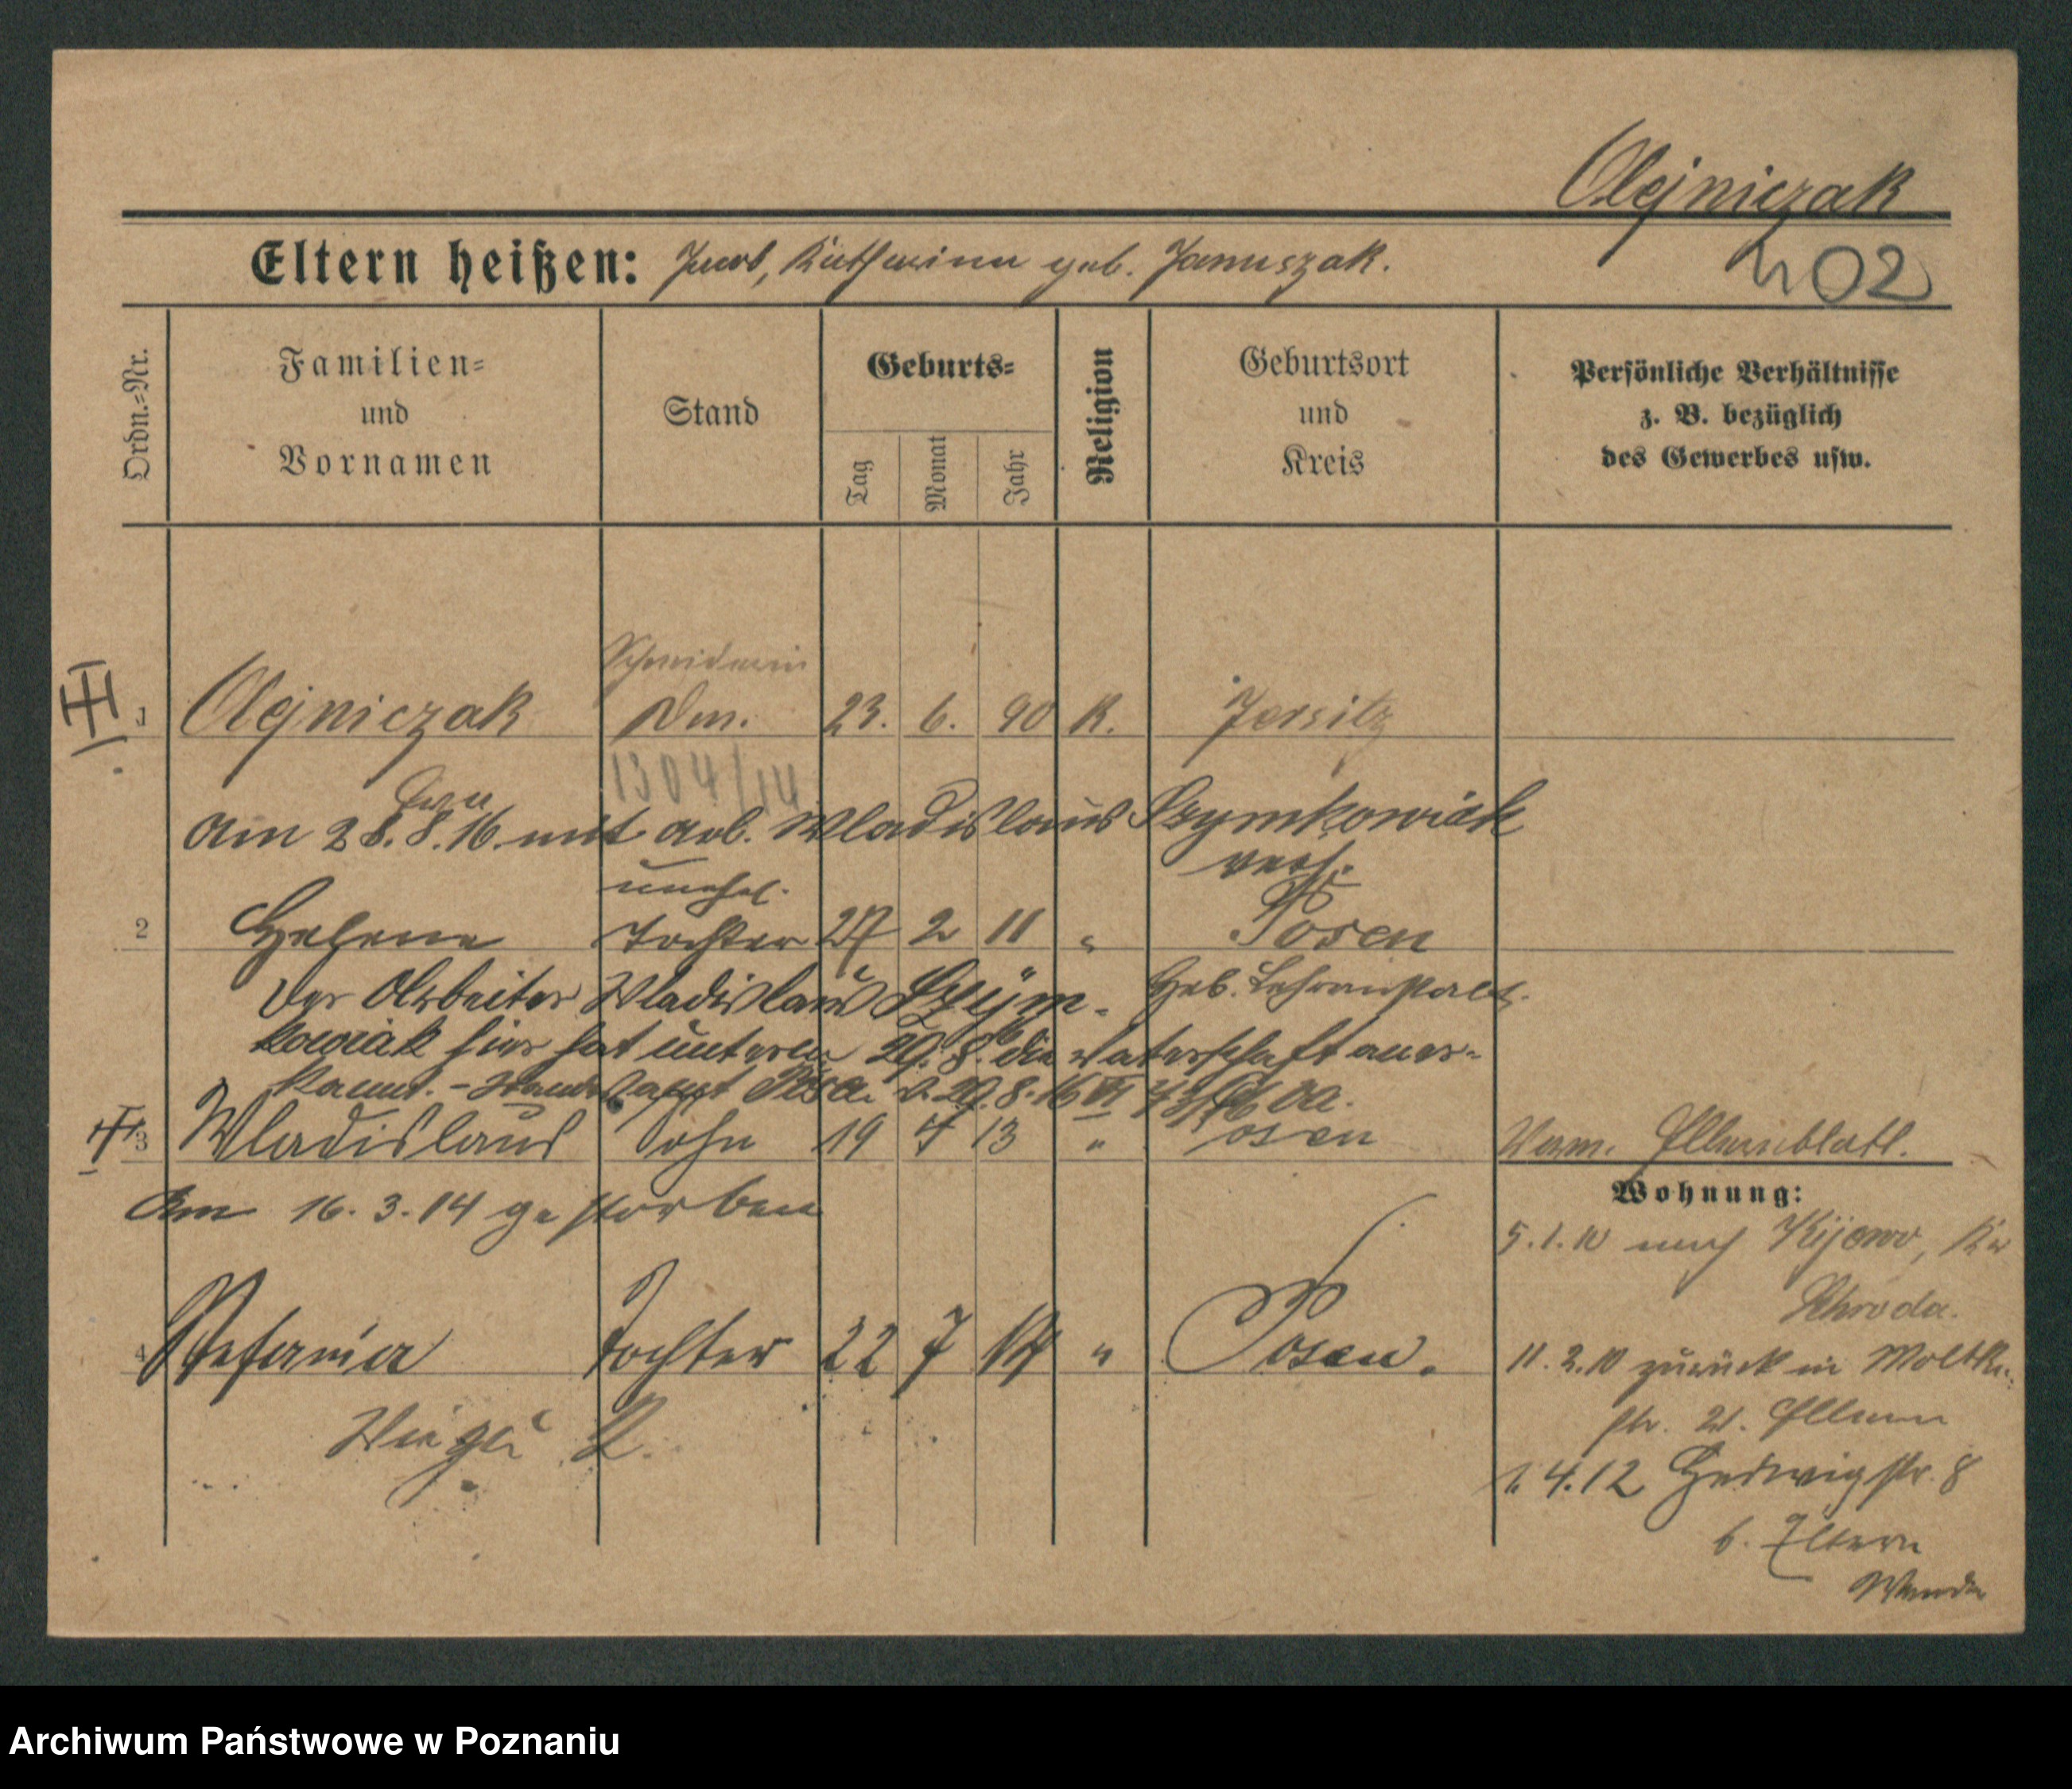 Olejniczak
402
Eltern heißen: Jacob, Katharina geb. Januszak.
Ordn.=Nr.
Familien=
und
Vornamen
Stand
Geburts=
Tag
Monat
Jahr
Religion
Geburtsort
und
Kreis
Persönliche Verhältnisse
z. B. bezüglich
des Gewerbes usw.
Schneiderin
1 Olejniczak 23. 6. 90 K. Jersitz
1304/14
am 28. 8. 16. mit arb. Wladislaus Szymkowiak
verh.
unehel.
2 Helene Tochter 27 2 11 " Posen
Geb. Lehranstalt.
Der Arbeiter Wladislaus Szym-
kowiak hier hat unterm 29. 8. die Vaterschaft aner-
kannt. - Standesamt 29. 8. 16
3 Wladislaus Sohn 19 4 13 " Posen
Am 16. 3. 14 gestorben
Verm. Elternblatt.
Wohnung:
5. 1. 10 nach Kijewo, Kr
Schroda.
4 Stefania Tochter 22 7 14 " Posen.
11. 2. 10 zurück in Moltke
str. 21. Eltern
1. 4. 12 Hedwigstr. 8
b. Eltern
Archiwum Państwowe w Poznaniu